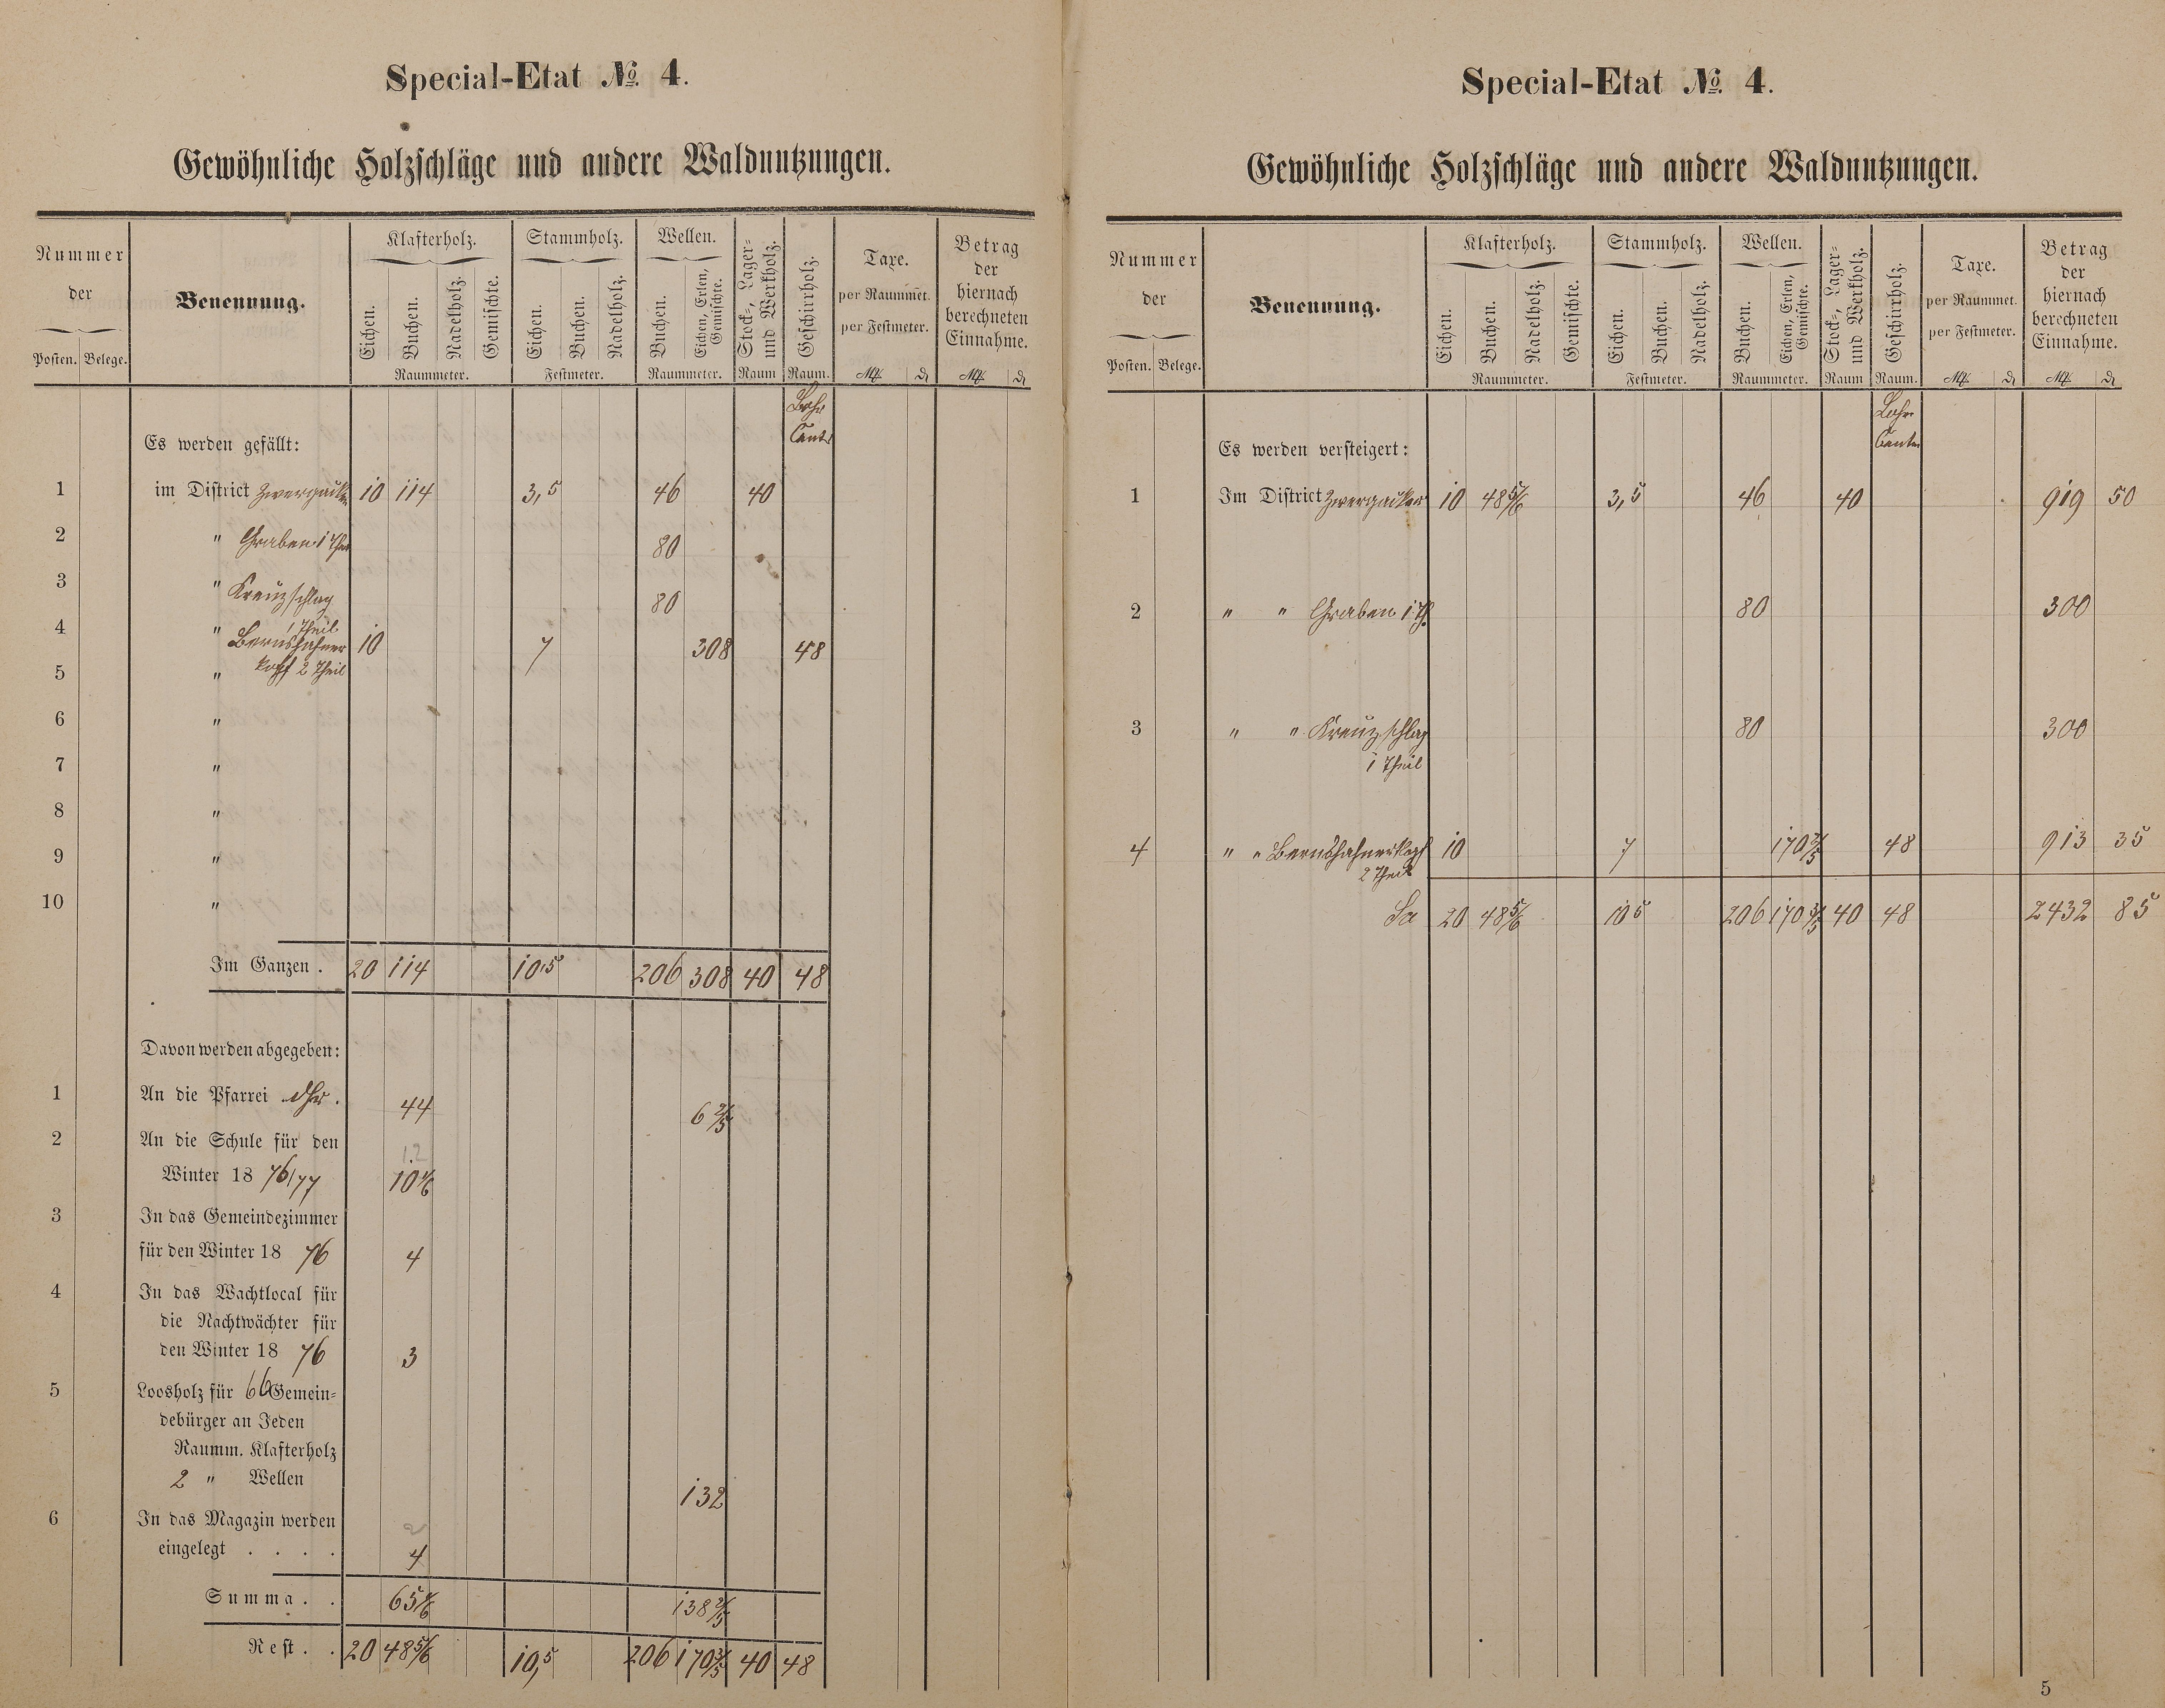 Special-Etat № 4.
Gewöhnliche Holzschläge und andere Waldnutzungen.
Nummer der
Posten. Belege.
Benennung.
Klafterholz.
Eichen. Buchen. Nadelholz. Gemischte.
Raummeter.
Stammholz.
Eichen. Buchen. Nadelholz.
Festmeter.
Wellen.
Buchen. Eichen, Erlen, Gemischte.
Raummeter.
Stock-, Lager- und Werkholz.
Raum
Geschirrholz.
Raum.
Taxe.
per Raummet.
per Festmeter.
ℳ ₰
Betrag
der
hiernach
berechneten
Einnahme.
ℳ ₰
Lohr
Cent
Es werden gefällt:
1 im District Zwergacker 10 114 3,5 46 40
2 " Graben 1 Theil 80
3 " Kreuzschlag 80
1 Theil
4 " Bernshahner 10 7 308 48
5 " kopf 2 Theil
6 "
7 "
8 "
9 "
10 "
Im Ganzen . 20 114 10,5 206 308 40 48
Davon werden abgegeben:
1 An die Pfarrei . 44 6 2/5
2 An die Schule für den 12
Winter 18 76/77
3 In das Gemeindezimmer
für den Winter 18 76 4
4 In das Wachtlocal für
die Nachtwächter für
den Winter 18 76 3
5 Loosholz für 66 Gemein-
debürger an Jeden
Raumm. Klafterholz
2 " Wellen 132
6 In das Magazin werden 2
eingelegt . . . . 4
Summa . . 138 2/5
Rest . . 20 48 5/6 10,5 206 170 3/5 40 48
Special-Etat № 4.
Gewöhnliche Holzschläge und andere Waldnutzungen.
Nummer der
Posten. Belege.
Benennung.
Klafterholz.
Eichen. Buchen. Nadelholz. Gemischte.
Raummeter.
Stammholz.
Eichen. Buchen. Nadelholz.
Festmeter.
Wellen.
Buchen. Eichen, Erlen, Gemischte.
Raummeter.
Stock-, Lager- und Werkholz.
Raum
Geschirrholz.
Raum.
Taxe.
per Raummet.
per Festmeter.
ℳ ₰
Betrag
der
hiernach
berechneten
Einnahme.
ℳ ₰
Lohr
Centr
Es werden versteigert:
1 Im District Zwergacker 10 48 5/6 3,5 46 40 919 50
2 " " Graben 1 Th. 80 300
3 " " Kreuzschlag 80 300
1 Theil
4 " " Bernshahnerkopf 10 7 170 3/5 48 913 35
2 Theil
Sa 20 48 5/6 10 5 206 170 3/5 40 48 2432 85
5